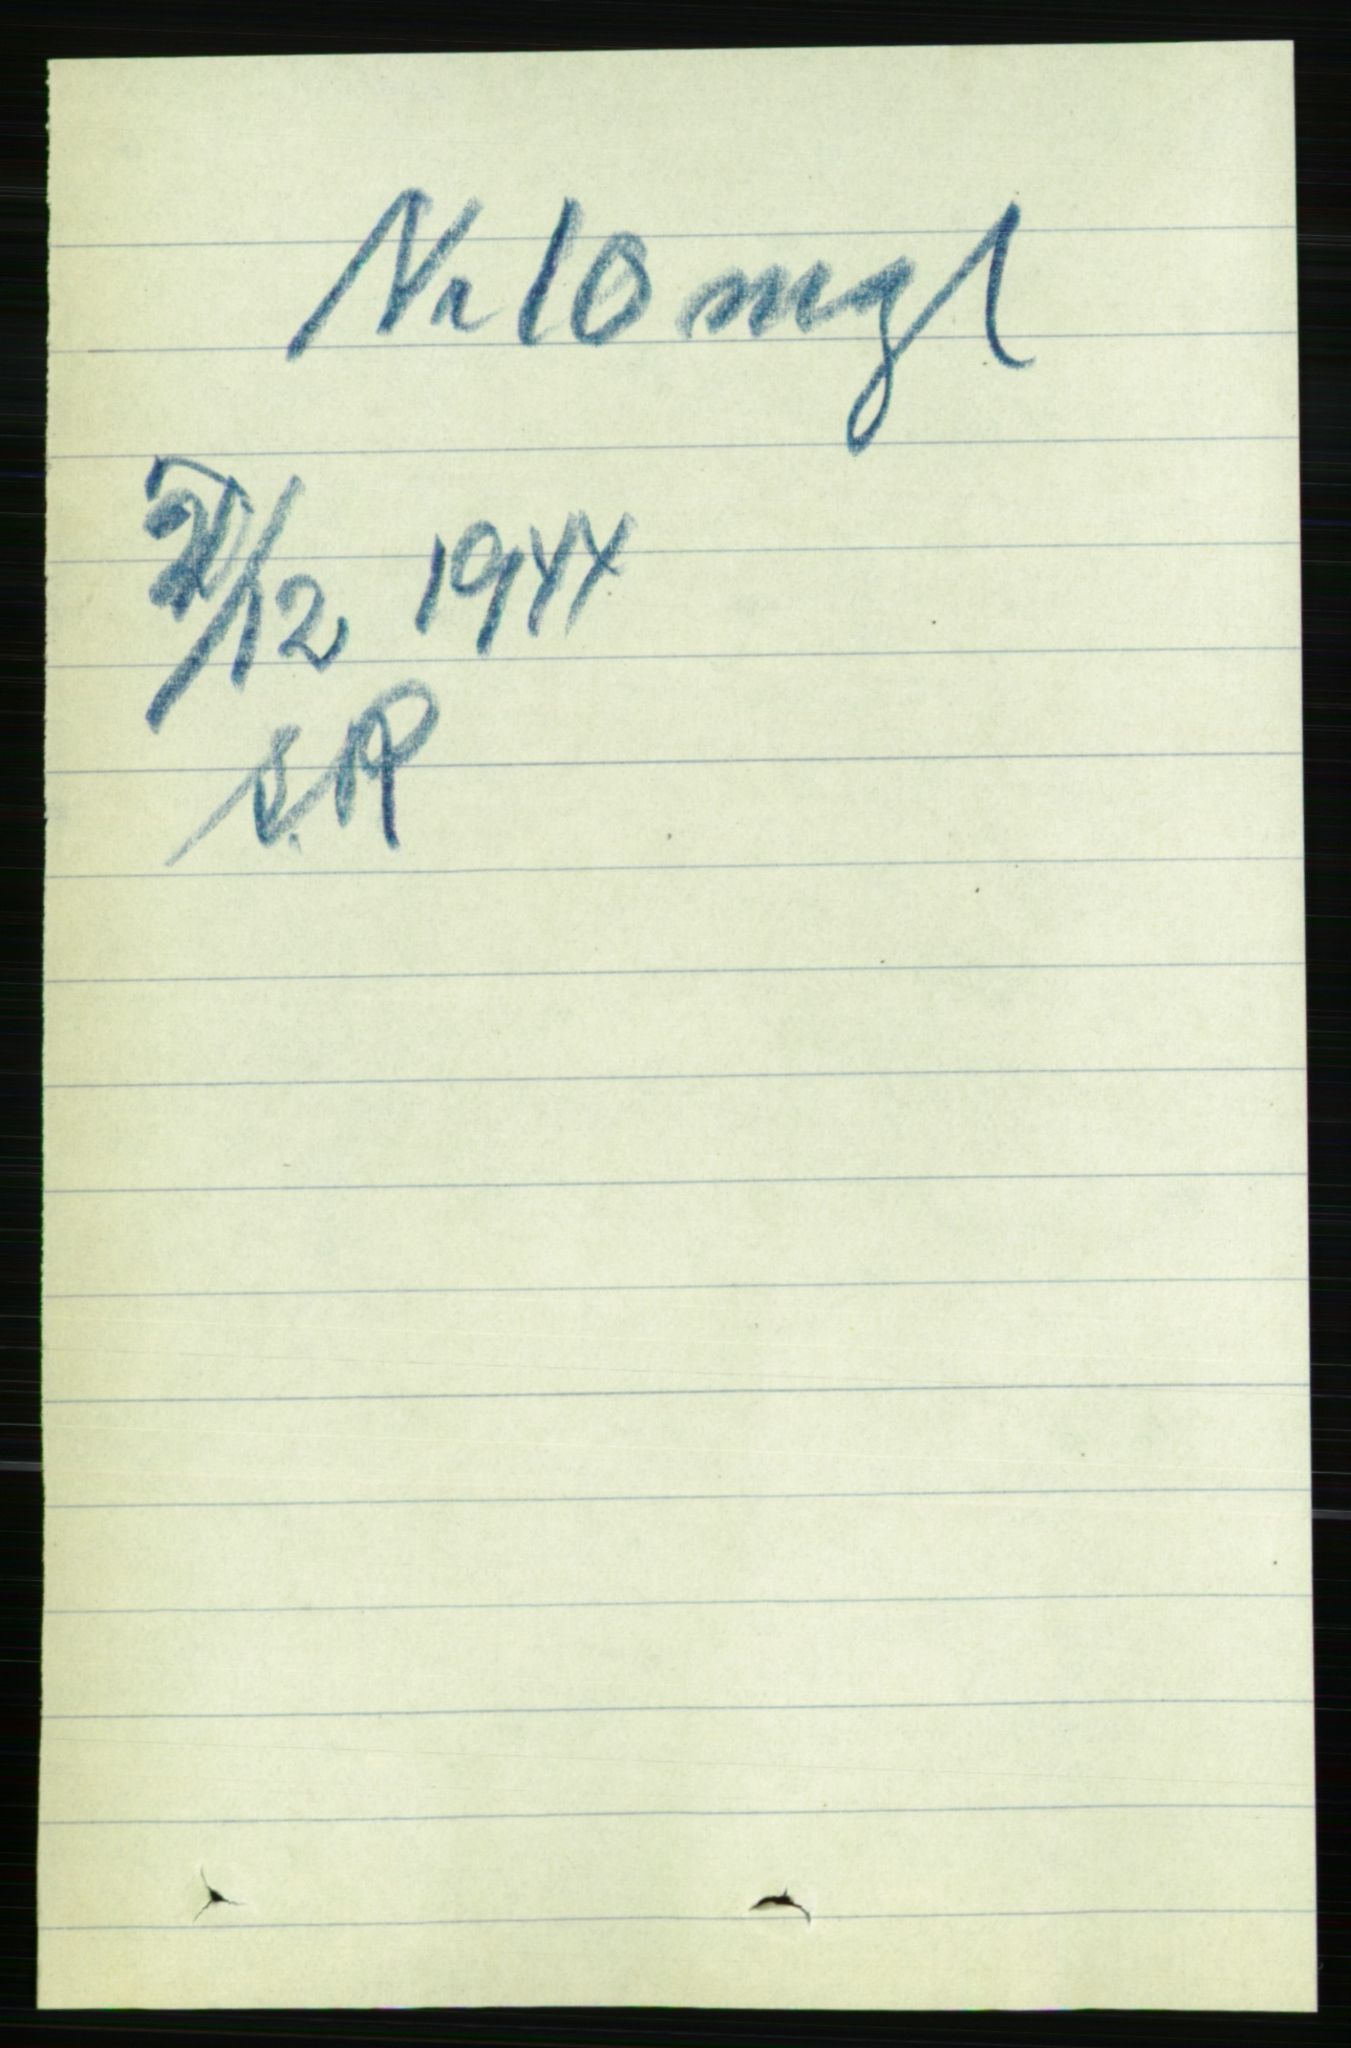 Nr 10 mgl
21/12 1944
S.R